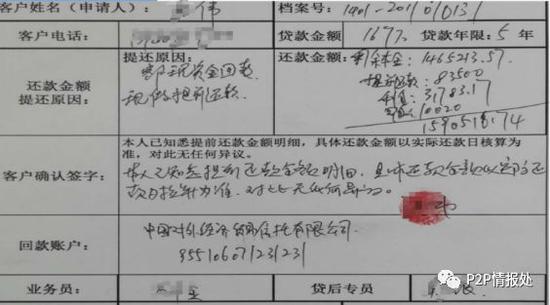 客户姓名(申请人): 伟 档案号: 1401-2017010131
客户电话: 贷款金额 167万 贷款年限: 5年
还款金额
提还原因:
提还原因:
客户现资金回款
现做提前还款
还款金额: 剩余本金: 1465213.57
提前还款: 83500
利息: 31783.17
10020
1590518.74
本人已知悉提前还款金额明细,具体还款金额以实际还款日核算为
准,对此无任何异议。
客户确认签字:
本人已知悉提前还款金额明细,具体还款金额以实际还
款日核算为准,对此无任何异议。
回款账户:
中国对外经济贸易信托有限公司
955106071231231
业务员: 贷后专员
P2P情报处